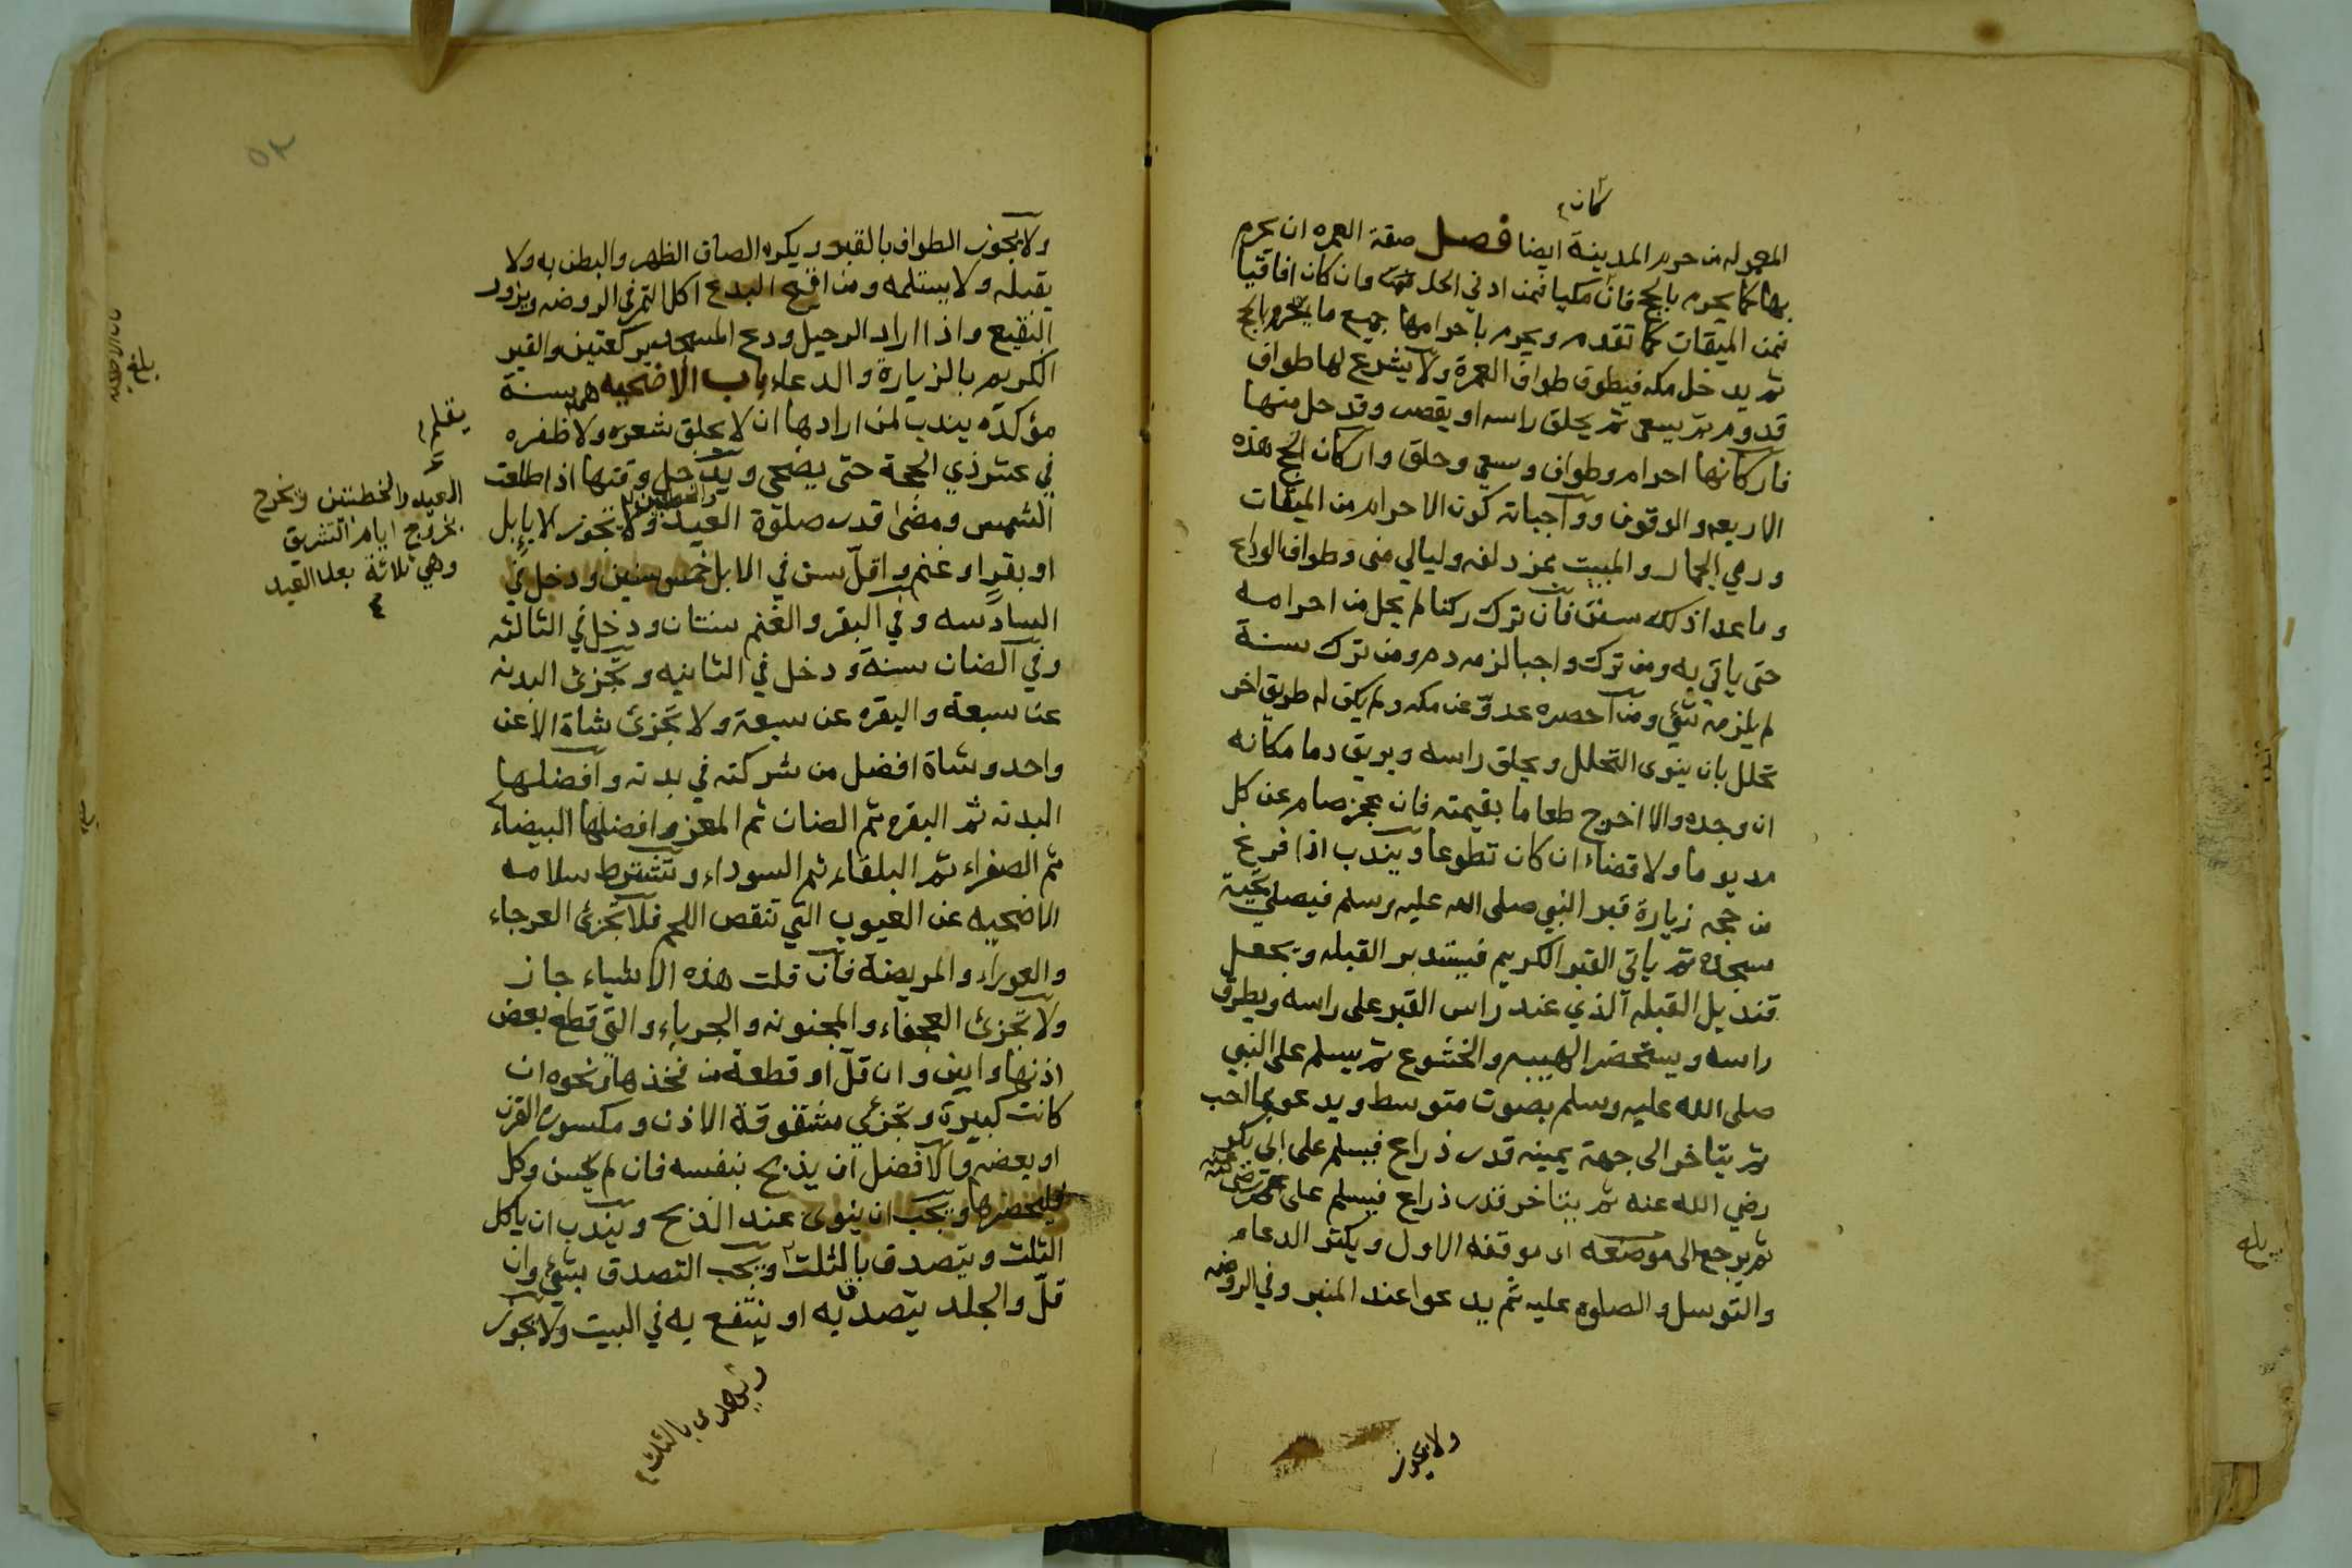 كان
المعمول من حرم المدينة ايضا فصل صفة العمره ان يحرم
بها كما يحرم بالحج فان مكيا فمن ادني الحل وان كان افاقيا
فمن الميقات كما تقدم ويحرم باحرامها جميع ما يحرم بالحج
ثم يدخل مكه فيطوف طواف العمرة ولا يشرع لها طواف
قدوم ثم يسعى ثم يحلق راسه او يقصر وقد حل منها
فاركانها احرام وطواف وسعي وحلق واركان الحج هذه
الاربعه والوقوف وواجباته كون الاحرام من الميقات
ورمي الجمار والمبيت بمزدلفه وليالي منى وطواف الوداع
وما عدا ذلك سنن فان ترك ركنا لم يحل من احرامه
حتى ياتي به ومن ترك واجبا لزمه دم ومن ترك سنة
لم يلزمه شيء ومن احصره عدوّ عن مكه ولم يكن له طريق اخر
تحلل بان ينوى التحلل ويحلق راسه ويريق دما مكانه
ان وجده والا اخرج طعاما بقيمته فان عجز صام عن كل
مد يوما ولا قضاء ان كان تطوعا ويندب اذا فرغ
من حجه زيارة قبر النبي صلى الله عليه وسلم فيصلي تحية
مسجده ثم ياتي القبر الكريم فيستدبر القبله ويجعل
قنديل القبله الذي عند راس القبر على راسه ويطرق
راسه ويستحضر الهيبه والخشوع ثم يسلم على النبي
صلى الله عليه وسلم بصوت متوسط ويدعو بما احب
ثم يتاخر الى جهة يمينه قدر ذراع فيسلم على ابي بكر
رضي الله عنه ثم يتاخر قدر ذراع فيسلم على عمر رضي الله عنه
ثم يرجع الى موضعه اى موقفه الاول ويكثر الدعاء
والتوسل والصلوه عليه ثم يدعوا عند المنبر وفي الروضه
ولا يجوز
٥٢
ولا يجوز الطواف بالقبر ويكره الصاق الظهر والبطن به ولا
يقبله ولا يستلمه ومن اقبح البدع اكل التمر في الروضه ويزور
البقيع واذا اراد الرحيل ودع المسجد بركعتين والقبر
الكريم بالزيارة والدعاء باب الاضحيه هي سنة
مؤكده يندب لمن ارادها ان لا يحلق شعره ولا ظفره
في عشر ذي الحجة حتى يضحي ويدخل وقتها اذا طلعت
الشمس ومضى قدر صلوة العيد ولا تجوز الا بابل
او بقر او غنم واقلّ سن في الابل خمس سنين ودخل في
السادسه وفي البقر والغنم سنتان ودخل في الثالثه
وفي الضان سنة ودخل في الثانيه وتجزئ البدنه
عن سبعة والبقره عن سبعة ولا تجزئ شاة الا عن
واحد وشاة افضل من شركته في بدنه وافضلها
البدنه ثم البقره ثم الضان ثم المعز وافضلها البيضاء
ثم الصفراء ثم البلقاء ثم السوداء وتشترط سلامه
الاضحيه عن العيوب التي تنقص اللحم فلا تجزئ العرجاء
والعوراء والمريضة فان قلت هذه الاشياء جاز
ولا تجزئ العجفاء والمجنونه والجرباء والتي قطع بعض
اذنها وابين وان قلّ او قطعة من فخذها ونحوه ان
كانت كبيرة وتجزئ مشقوقة الاذن ومكسورة القرن
او بعضه والافضل ان يذبح بنفسه فان لم يحسن وكل
وليحضرها ويجب ان ينوى عند الذبح ويندب ان ياكل
الثلث ويتصدق بالثلث ويجب التصدق بشيء وان
قلّ والجلد يتصدق به او ينتفع به في البيت ولا يجوز
ويهدى بالثلث
يقلم
العيد والخطبتين وتخرج
بخروج ايام التشريق
وهي ثلاثة بعد العيد
بلغ